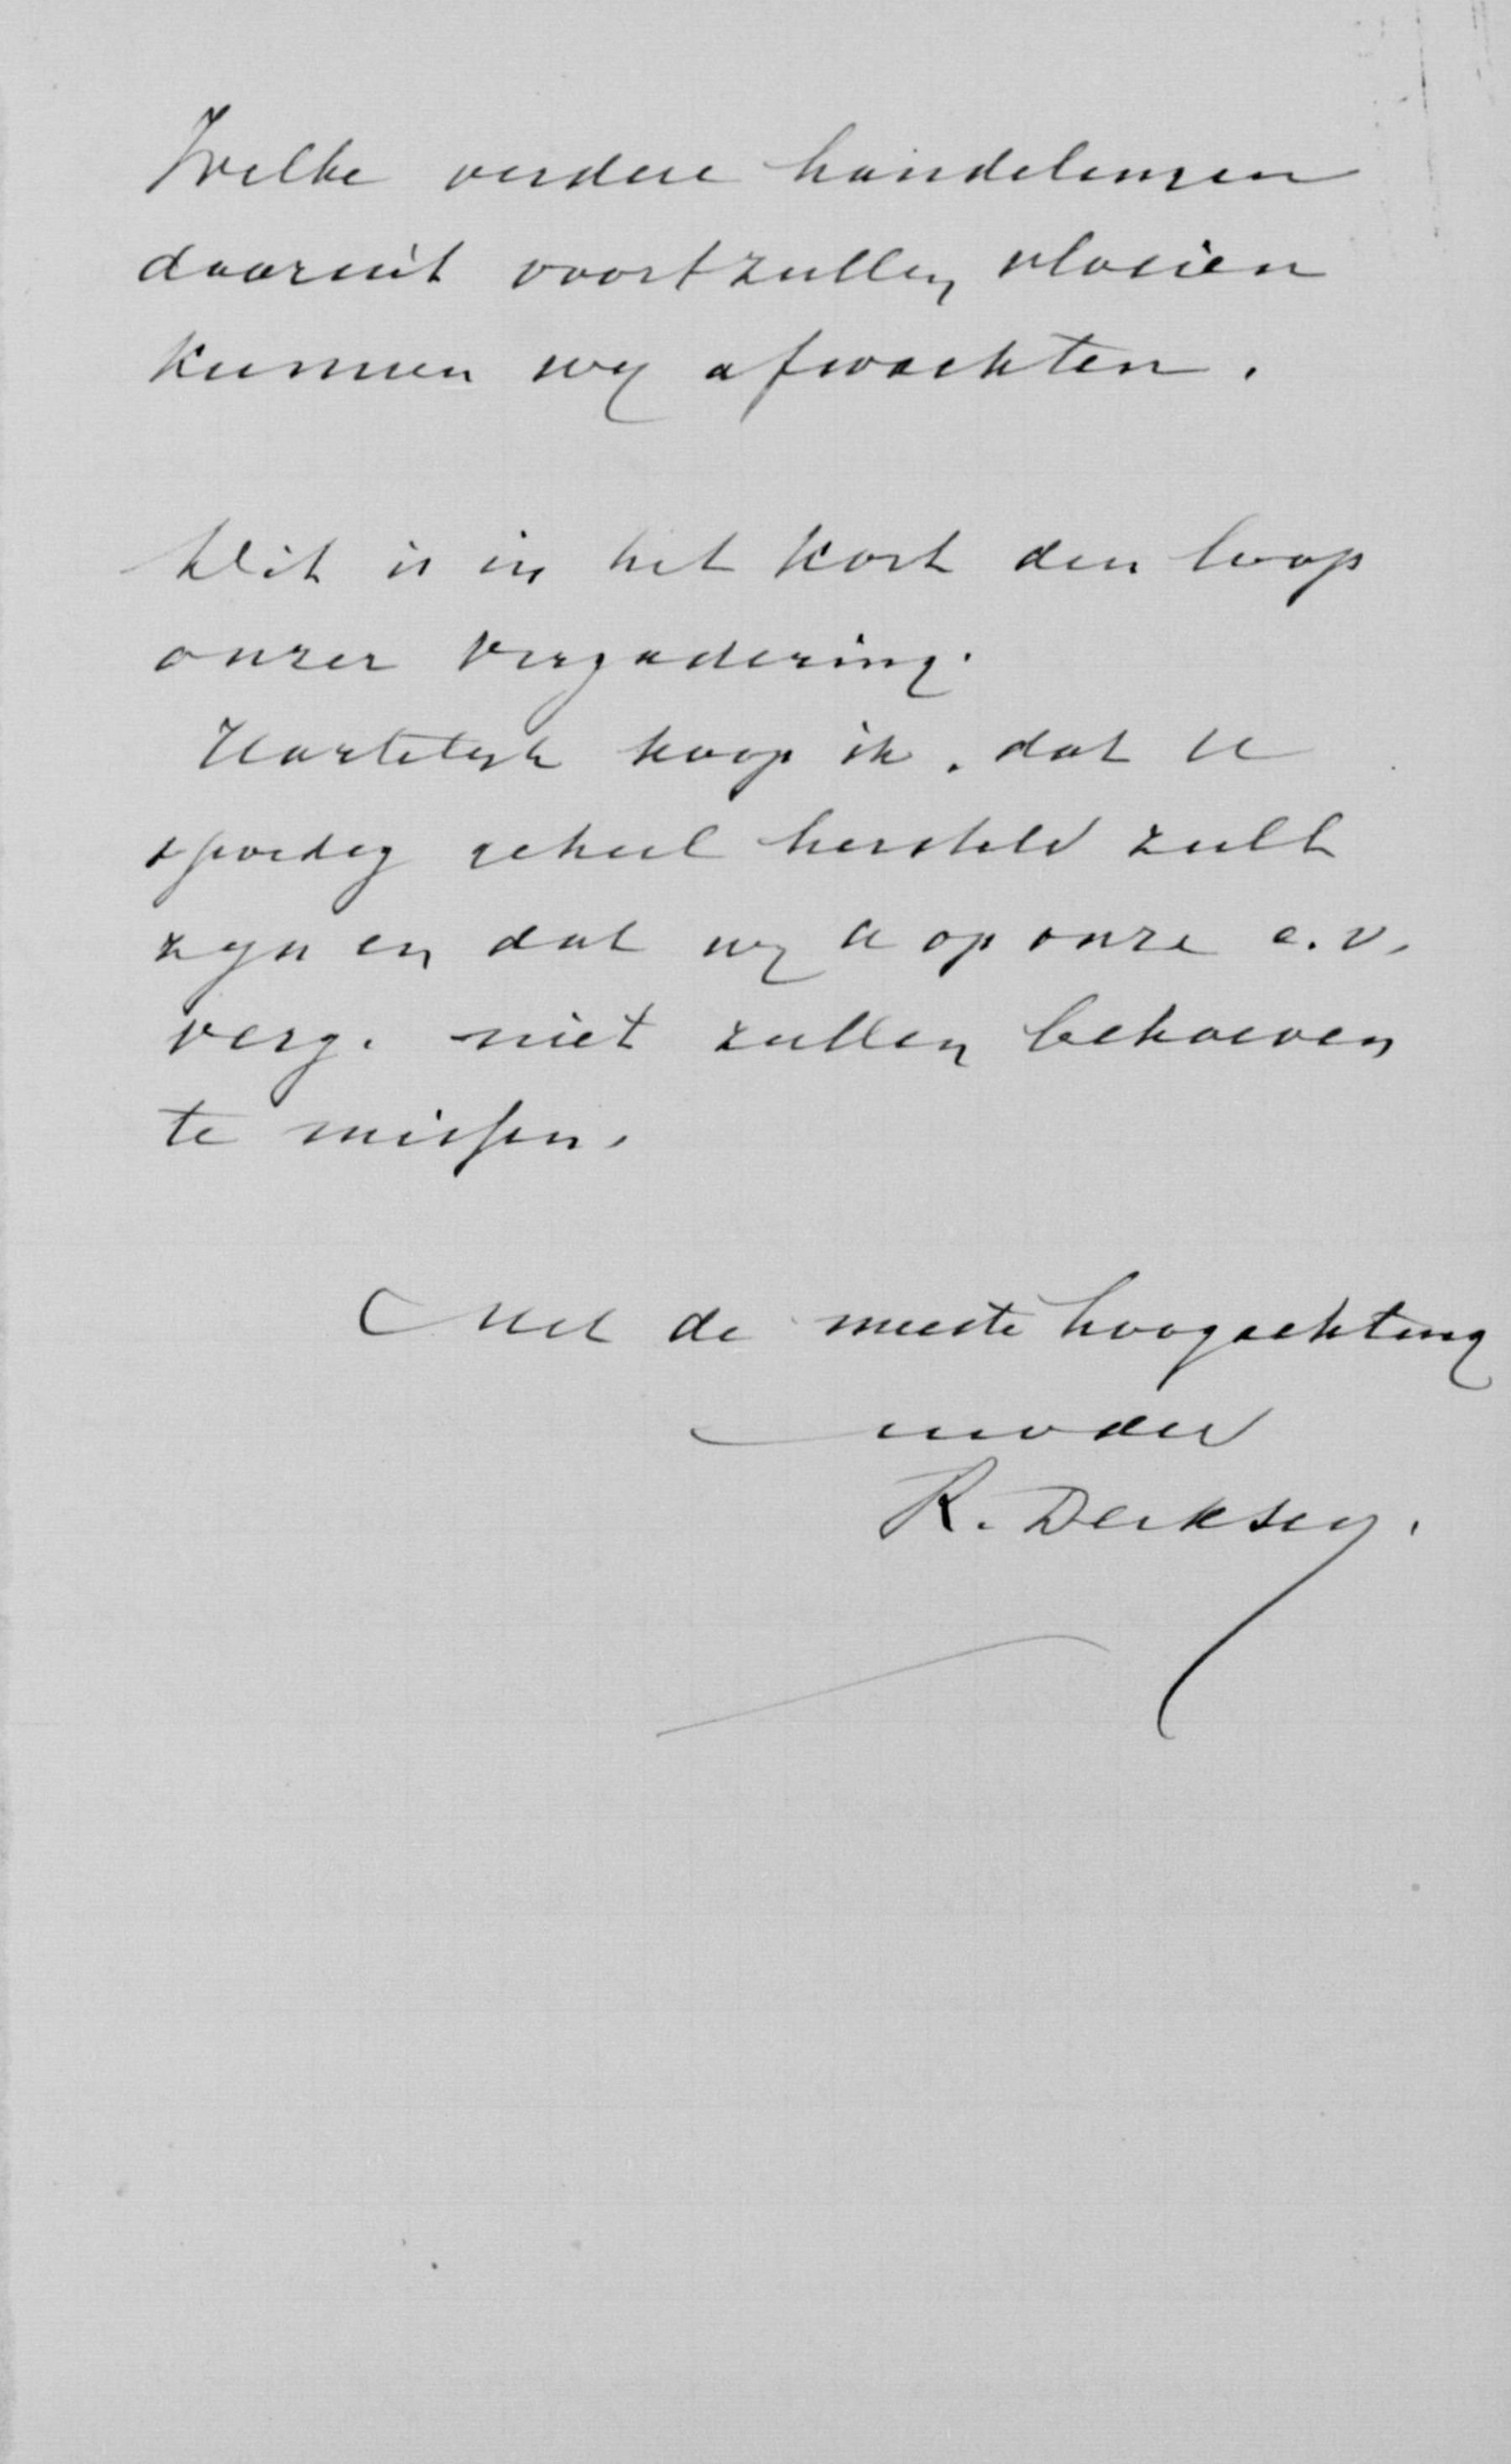 Welke verdere handelingen
daaruit voort zullen vloeien
kunnen wy afwachten.
Dit is in het kort den loop
onzer vergadering.
Hartelyk hoop ik, dat U
spoedig geheel hersteld zult
zyn en dat wy U op onze e.v.
verg. niet zullen behoeven
te missen.
Met de meeste hoogachting
uwdw
R. Derksen.